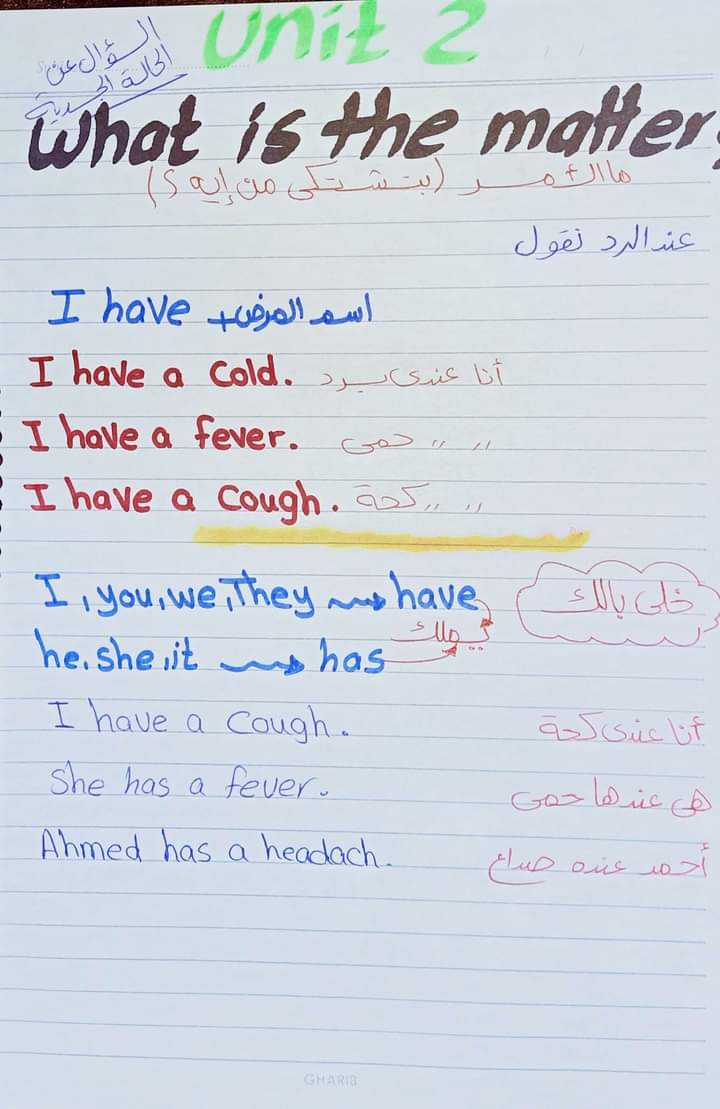 Unit 2
السؤال عن
الحالة الصحية
What is the matter?
ما الأمر (بتشتكى من إيه؟)
عند الرد نقول
I have + اسم المرض
I have a cold. أنا عندى برد
I have a fever. " " حمى
I have a cough. " " كحة
I, you, we, They → have
خلى بالك
يملك
he, she, it → has
I have a cough. أنا عندى كحة
She has a fever. هى عندها حمى
Ahmed has a headach. أحمد عنده صداع
GHARIB